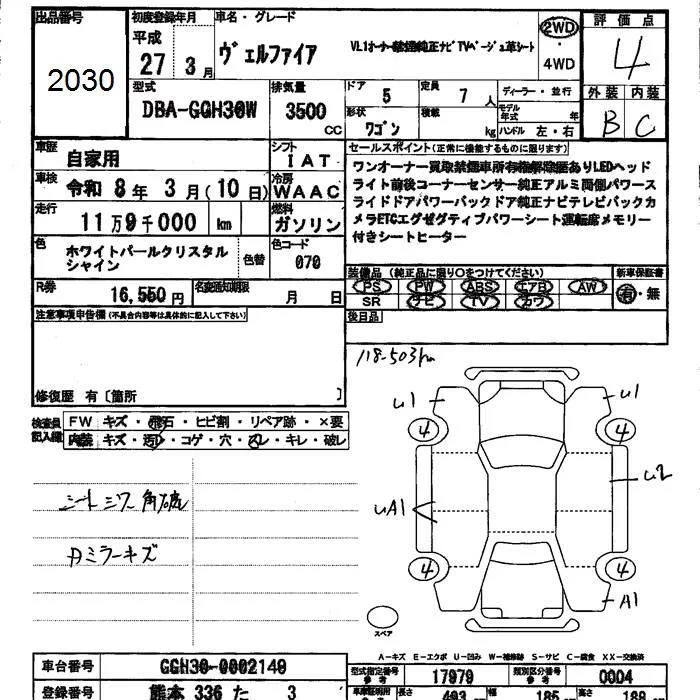 出品番号 2030
初度登録年月 平成 27 3月
車名・グレード ヴェルファイア VL1オーナー禁煙純正ナビTVベージュ革シート
2WD・4WD
評価点 4
外装 内装
B C
型式 DBA-GGH30W
排気量 3500 CC
ドア 5
定員 7 人
ディーラー・並行
形状 ワゴン
積載 kg
モデル年式 年
ハンドル 左・右
車歴 自家用
シフト IAT
車検 令和 8年 3月(10日)
冷房 WAAC
走行 11万9千000 km
燃料 ガソリン
色 ホワイトパールクリスタルシャイン
色替
色コード 070
R券 16,550円
名変通知期限 月 日
セールスポイント(正常に機能するものに限ります)
ワンオーナー買取禁煙車所有権解除歴ありLEDヘッド
ライト前後コーナーセンサー純正アルミ両側パワース
ライドドアパワーバックドア純正ナビテレビバックカ
メラETCエグゼグティブパワーシート運転席メモリー
付きシートヒーター
装備品(純正品に限り○をつけてください)
新車保証書
PS PW ABS エアB AW
SR ナビ TV カワ
有・無
後日品
注意事項申告欄(不具合内容等は具体的に記入して下さい)
修復歴 有〔箇所 〕
118-503km
検査員記入欄
FW キズ・飛石・ヒビ割・リペア跡・×要
内装 キズ・汚レ・コゲ・穴・スレ・キレ・破レ
シートシワ
ミラーキズ
u1 u1
4 4
uA1 u2
4 4
A1
スペア
A-キズ E-エクボ U-凹み W-補修跡 S-サビ C-腐食 XX-交換済
車台番号 GGH30-0002140
登録番号 熊本 336 た 3
型式指定番号 参考 17979
類別区分番号 参考 0004
長さ 493
幅 185
高さ 188